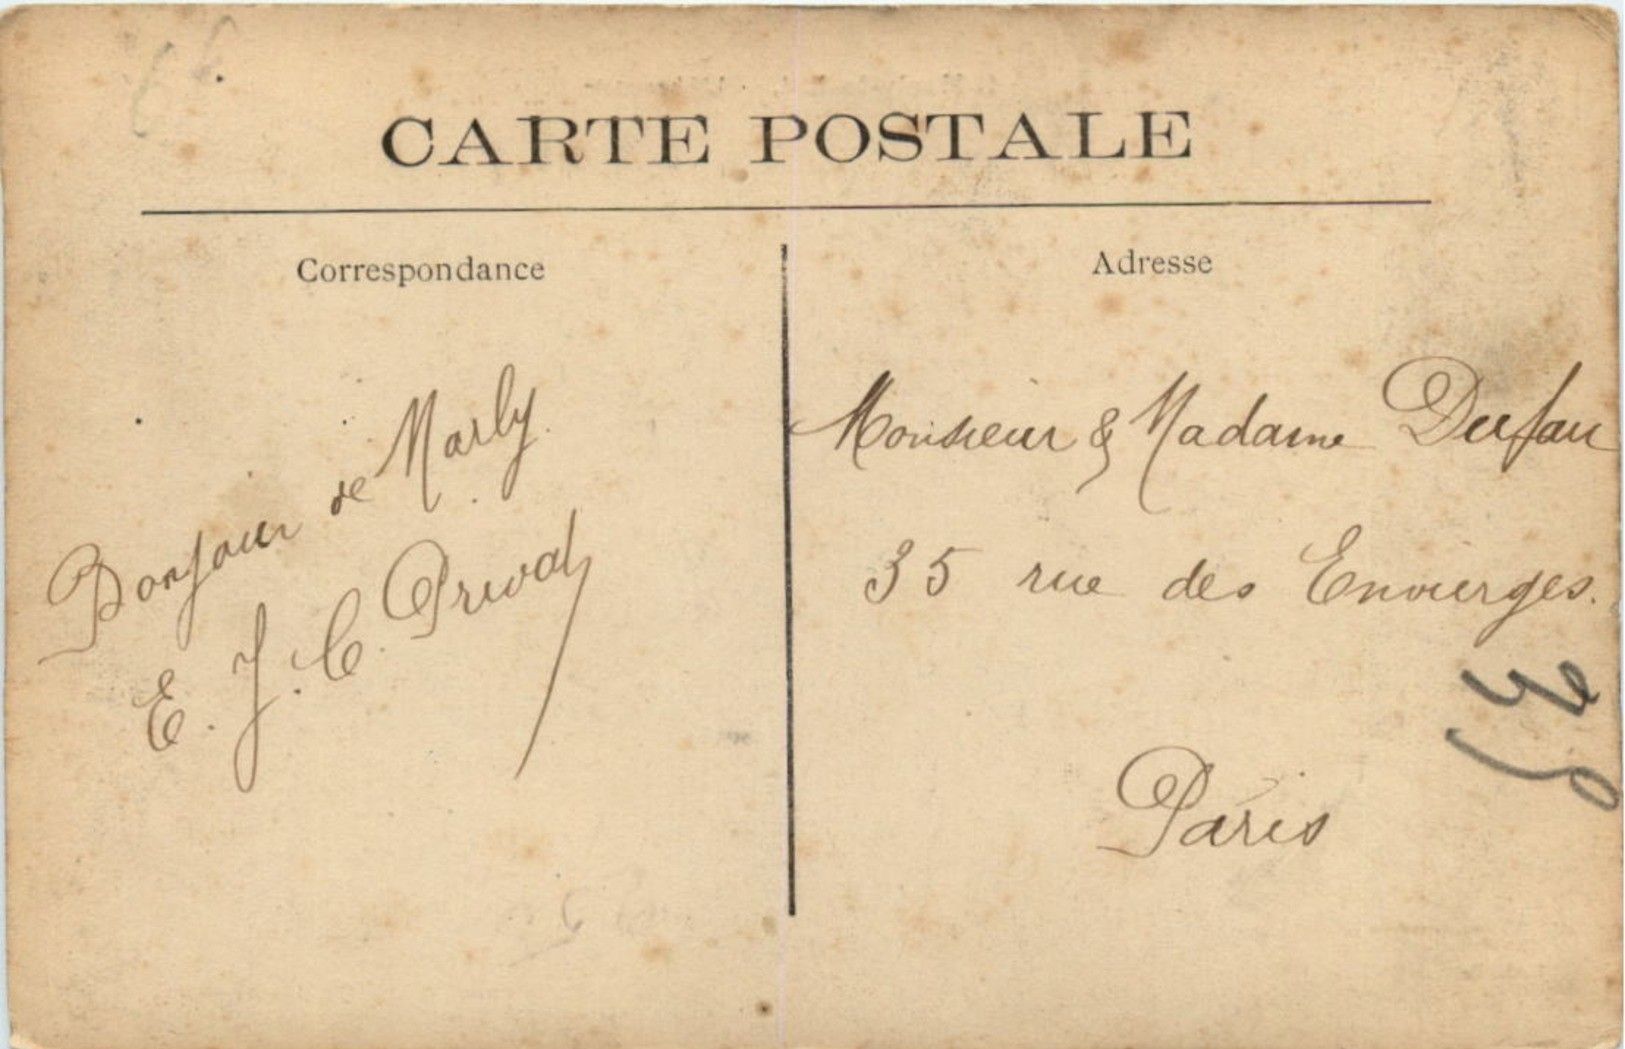 CARTE POSTALE
Correspondance
Bonjour de Marly.
E. J. C. Privat
Adresse
Monsieur & Madame Dufau
35 rue des Envierges.
Paris